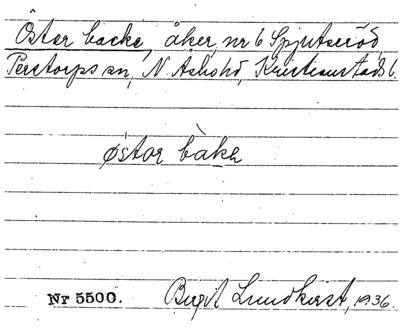 Öster backe, åker, nr 6 Spjutseröd,
Perstorps sn, N. Åsbo hd, Kristianstads l.
østor bàka
Nr 5500. Birgit Lundkvist, 1936.